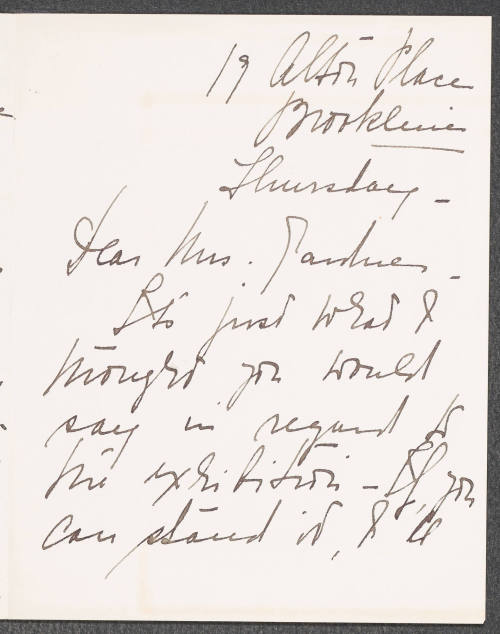 19 Alton Place
Brookline
Thursday -
Dear Mrs. Gardner -
It's just what I
thought you would
say in regard to
the exhibition - If, you
can stand it, I'll